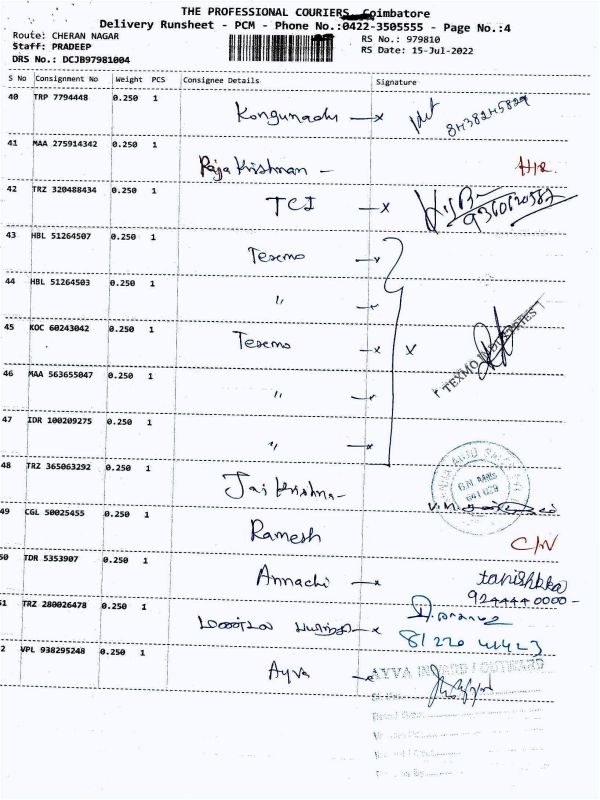 THE PROFESSIONAL COURIERS, Coimbatore
Delivery Runsheet - PCM - Phone No.:0422-3505555 - Page No.:4
Route: CHERAN NAGAR
Staff: PRADEEP
DRS No.: DCJB97981004
RS No.: 979810
RS Date: 15-Jul-2022
S No Consignment No Weight PCS Consignee Details Signature
40 TRP 7794448 0.250 1 Kongunadu
41 MAA 275914342 0.250 1 Raja Krishnan - H/R.
42 TRZ 320488434 0.250 1 TCI
43 HBL 51264507 0.250 1 Texmo
44 HBL 51264503 0.250 1 "
45 KOC 60243042 0.250 1 Texmo x
TEXMO INDUSTRIES
46 MAA 563655047 0.250 1 "
47 IDR 100209275 0.250 1 "
48 TRZ 365063292 0.250 1 Jai Krishna-
G.N. Mills
641 029
49 CGL 50025455 0.250 1 Ramesh C/N
50 IDR 5353907 0.250 1 Annachi tanishkka
924444 0000-
51 TRZ 280026478 0.250 1
81220 41423
2 VPL 938295248 0.250 1 Ayva
AYVA